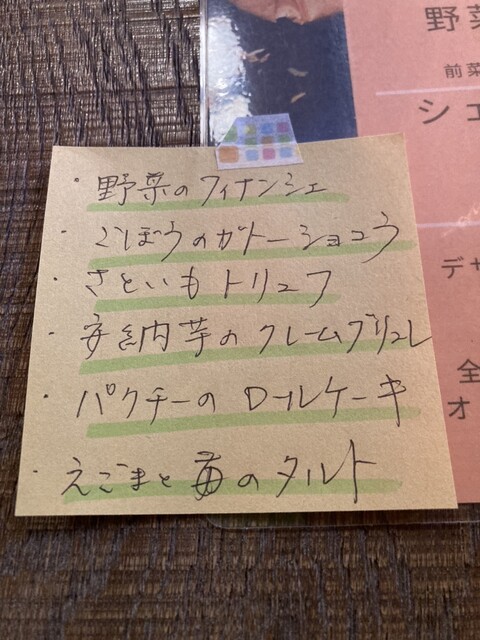 野菜
前菜
シェ
デサ
全
オ
・野菜のフィナンシェ
・ごぼうのガトーショコラ
・さといもトリュフ
・安納芋のクレームブリュレ
・パクチーのロールケーキ
・えごまと苺のタルト